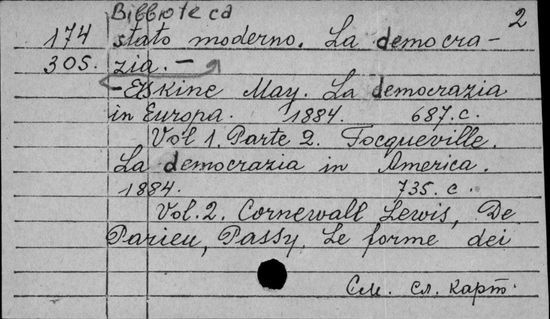 Biblioteca 2
174 stato moderno. La democra-
305. zia. -
- Erskine May. La democrazia
in Europa. 1884. 687. c.
Vol 1. Parte 2. Tocqueville.
La democrazia in America.
1884. 735. c.
Vol. 2. Cornewall Lewis, De
Parieu, Passy. Le forme dei
См. сл. карт.